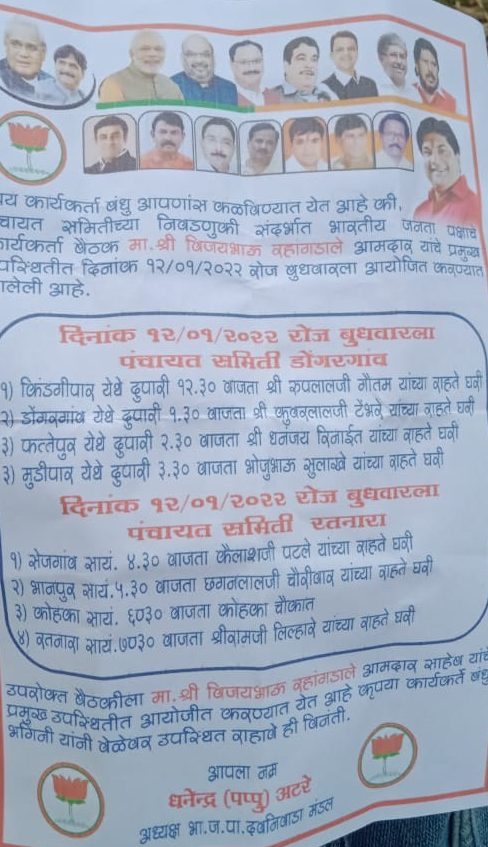 कार्यकर्ता बंधु आपणांस कळविण्यात येत आहे की,
समितीच्या निवडणुकी संदर्भात भारतीय जनता पक्षाचे
बैठक मा.श्री विजयभाऊ रहांगडाले आमदार यांचे प्रमुख
दिनांक १२/०१/२०२२ रोज बुधवारला आयोजित करण्यात
आहे.
दिनांक १२/०१/२०२२ रोज बुधवारला
पंचायत समिती डोंगरगांव
१) किंडगीपार येथे दुपारी १२.३० वाजता श्री रुपलालजी गौतम यांच्या राहते घरी
२) डोंगरगांव येथे दुपारी १.३० वाजता श्री कुवरलालजी टेंभरे यांच्या राहते घरी
३) फत्तेपुर येथे दुपारी २.३० वाजता श्री धनंजय रिनाईत यांच्या राहते घरी
३) मुडीपार येथे दुपारी ३.३० वाजता भोजुभाऊ सुलाखे यांच्या राहते घरी
दिनांक १२/०१/२०२२ रोज बुधवारला
पंचायत समिती रतनारा
१) सेजगांव सायं. ४.३० वाजता कैलाशजी पटले यांच्या राहते घरी
२) भानपुर सायं.५.३० वाजता छगनलालजी चौरीवार यांच्या राहते घरी
३) कोहका सायं. ६०३० वाजता कोहका चौकात
४) रतनारा सायं.७०३० वाजता श्रीरामजी लिल्हारे यांच्या राहते घरी
उपरोक्त बैठकीला मा.श्री विजयभाऊ रहांगडाले आमदार साहेब यांचे
प्रमुख उपस्थितीत आयोजीत करण्यात येत आहे कृपया कार्यकर्ते बंधु
भगिनी यांनी वेळेवर उपस्थित राहावे ही विनती.
आपला नम्र
धनेन्द्र (पप्पु) अटरे
अध्यक्ष भा.ज.पा.दवनिवाडा मंडल